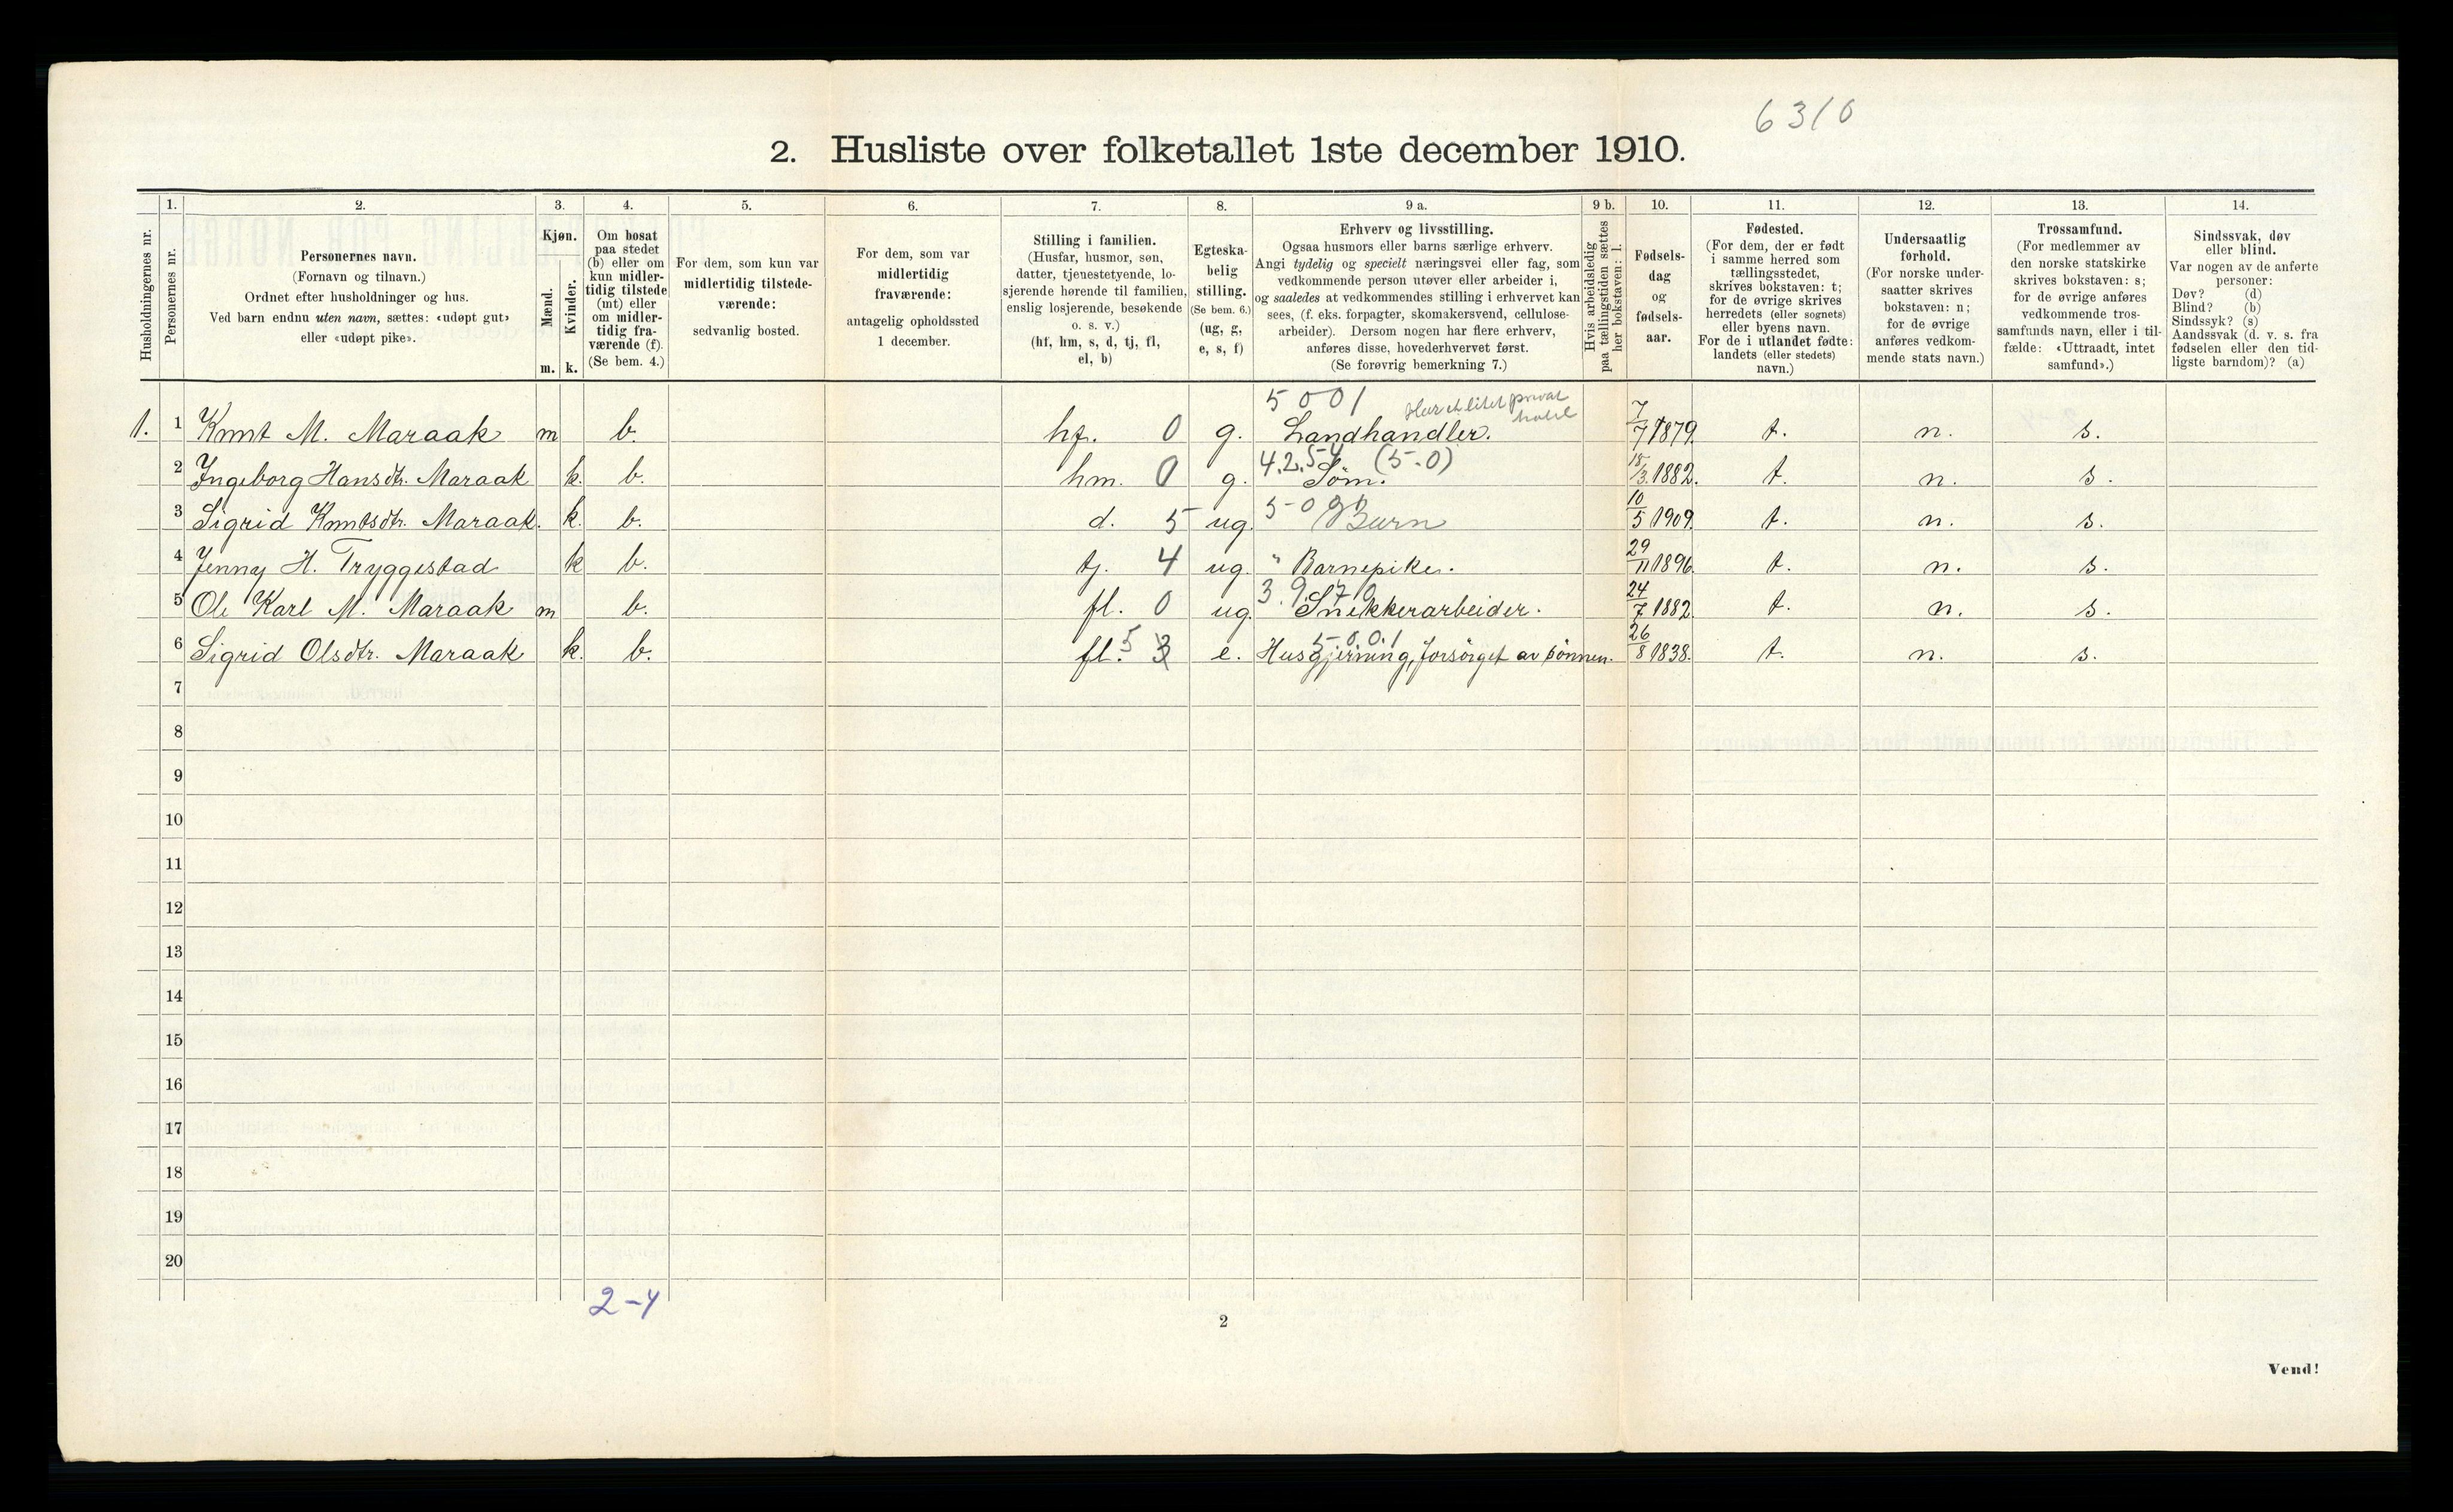 6310
2. Husliste over folketallet 1ste december 1910.
Husholdningernes nr.
1.
Personernes nr.
2.
Personernes navn.
(Fornavn og tilnavn.)
Ordnet efter husholdninger og hus.
Ved barn endnu uten navn, sættes: «udøpt gut»
eller «udøpt pike».
3.
Kjøn.
Mænd.
Kvinder.
m. k.
4.
Om bosat
paa stedet
(b) eller om
kun midler-
tidig tilstede
(mt) eller
om midler-
tidig fra-
værende (f).
(Se bem. 4.)
5.
For dem, som kun var
midlertidig tilstede-
værende:
sedvanlig bosted.
6.
For dem, som var
midlertidig
fraværende:
antagelig opholdssted
1 december.
7.
Stilling i familien.
(Husfar, husmor, søn,
datter, tjenestetyende, lo-
sjerende hørende til familien,
enslig losjerende, besøkende
o. s. v.)
(hf, hm, s, d, tj, fl,
el, b)
8.
Egteska-
belig
stilling.
(Se bem. 6.)
(ug, g,
e, s, f)
9 a.
Erhverv og livsstilling.
Ogsaa husmors eller barns særlige erhverv.
Angi tydelig og specielt næringsvei eller fag, som
vedkommende person utøver eller arbeider i,
og saaledes at vedkommendes stilling i erhvervet kan
sees, (f. eks. forpagter, skomakersvend, cellulose-
arbeider). Dersom nogen har flere erhverv,
anføres disse, hovederhvervet først.
(Se forøvrig bemerkning 7.)
9 b.
Hvis arbeidsledig
paa tællingstiden sættes
her bokstaven: l.
10.
Fødsels-
dag
og
fødsels-
aar.
11.
Fødested.
(For dem, der er født
i samme herred som
tællingsstedet,
skrives bokstaven: t;
for de øvrige skrives
herredets (eller sognets)
eller byens navn.
For de i utlandet fødte:
landets (eller stedets)
navn.)
12.
Undersaatlig
forhold.
(For norske under-
saatter skrives
bokstaven: n;
for de øvrige
anføres vedkom-
mende stats navn.)
13.
Trossamfund.
(For medlemmer av
den norske statskirke
skrives bokstaven: s;
for de øvrige anføres
vedkommende tros-
samfunds navn, eller i til-
fælde: «Uttraadt, intet
samfund».)
14.
Sindssvak, døv
eller blind.
Var nogen av de anførte
personer:
Døv? (d)
Blind? (b)
Sindssyk? (s)
Aandssvak (d. v. s. fra
fødselen eller den tid-
ligste barndom)? (a)
5001 Har et litet privat hotel
1. 1 Knut M. Maraak m b. hf. 0 g. Landhandler. 7/7 1879. t. n. s.
4.2.54 (5-0)
2 Ingeborg Hansdtr. Maraak k. b. hm. 0 g. Søm. 18/3 1882. t. n. s.
3 Sigrid Knutsdtr. Maraak. k. b. d. 5 ug. Barn 10/5 1909. t. n. s.
4 Jenny H. Tryggestad k b. tj. 4 ug. " Barnepike. 29/11 1896. t. n. s.
3.9.70
5 Ole Karl M. Maraak m b. fl. 0 ug. Snekkerarbeider. 24/7 1882. t. n. s.
5-0.0.1
6 Sigrid Olsdtr. Maraak k. b. fl. 5 3 e. Husgjerning, forsörget av sönnen. 26/8 1838. t. n. s.
7
8
9
10
11
12
13
14
15
16
17
18
19
20
2-4
2
Vend!